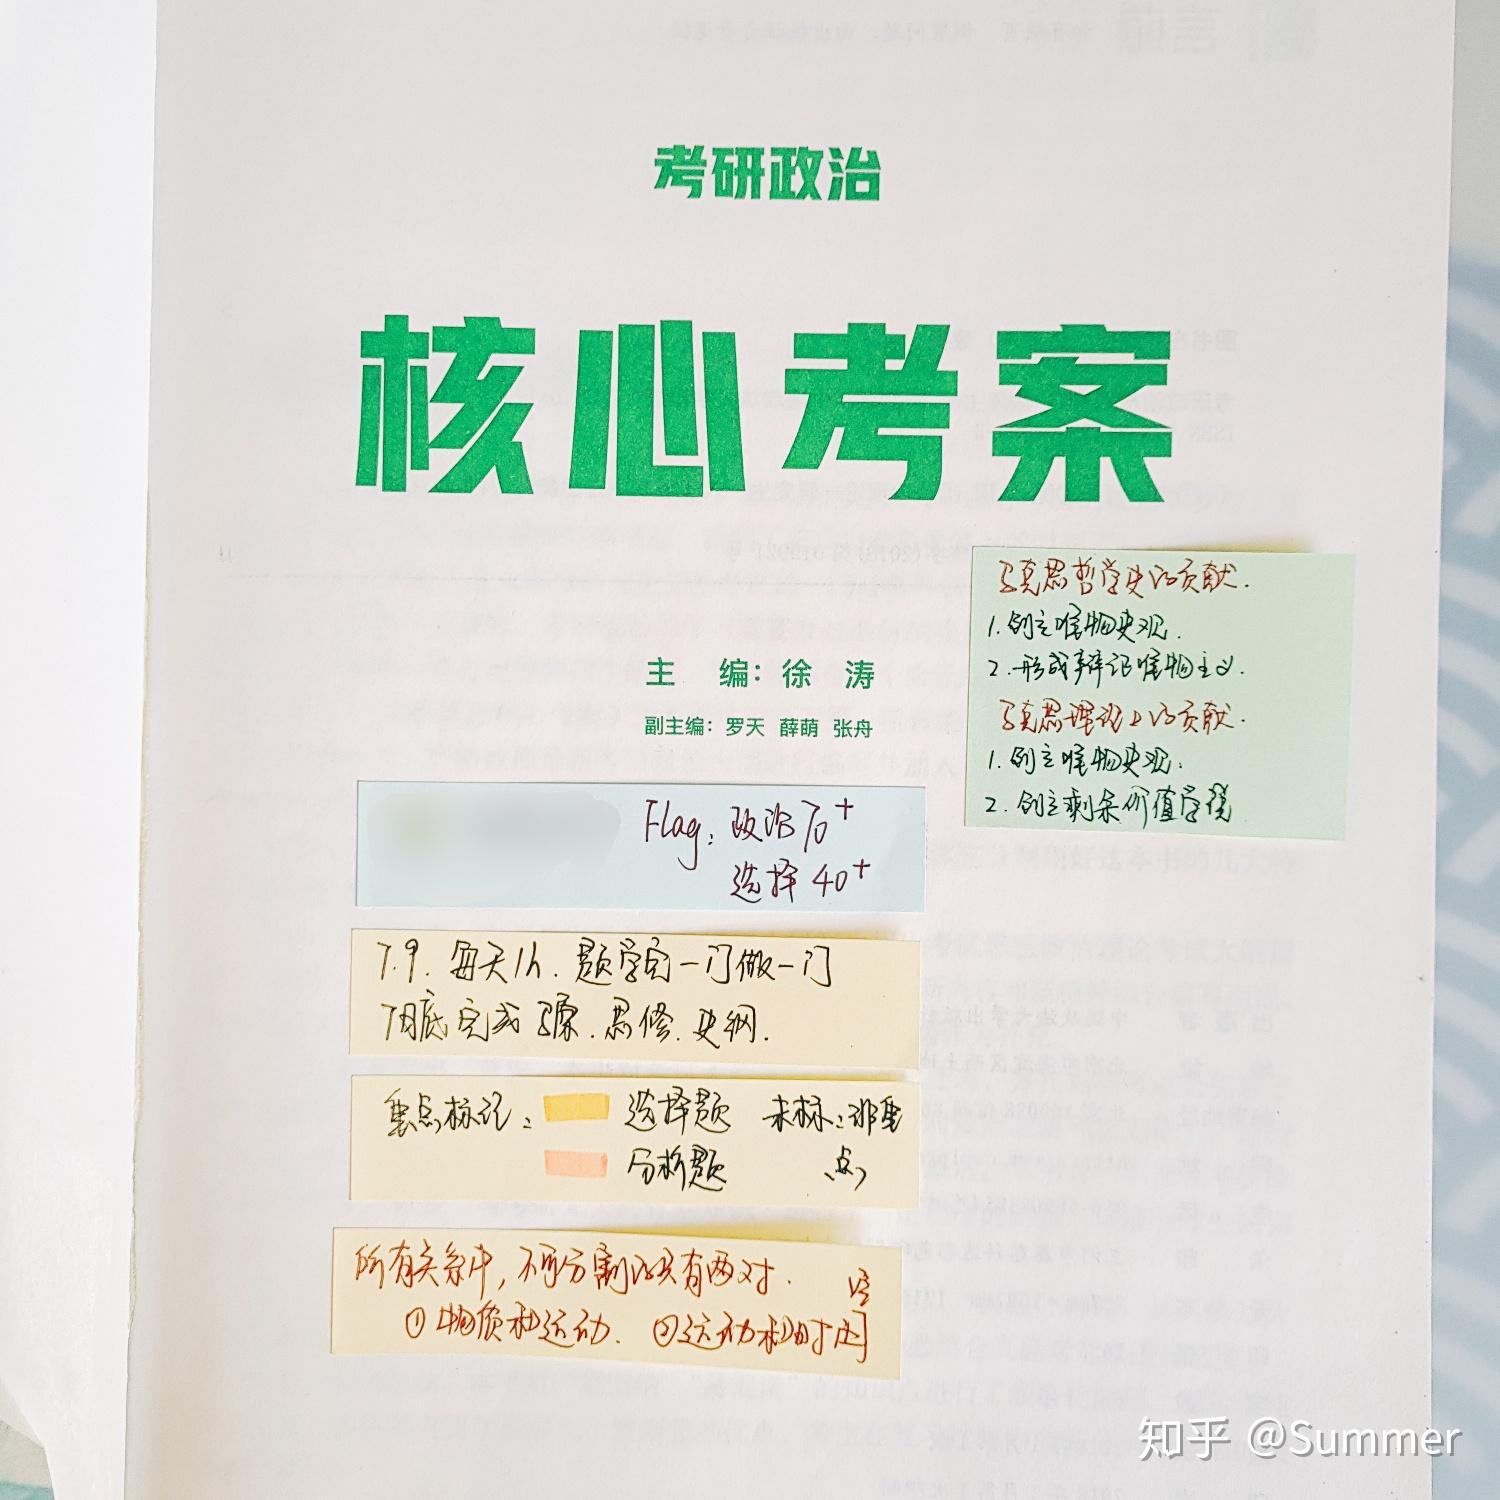 考研政治
核心考案
主 编：徐 涛
副主编：罗天 薛萌 张舟
马克思哲学史的贡献.
1.创立唯物史观.
2.形成辩证唯物主义.
马克思理论上的贡献.
1.创立唯物史观.
2.创立剩余价值学说
Flag：政治70+
选择40+
7.9.每天1h.题学完一门做一门
7月底完成马原.思修.史纲.
重点标记： 选择题 未标：非重
分析题 点
所有关系中，不可分割的只有两对.
①物质和运动. ②运动和时空间
知乎 @Summer